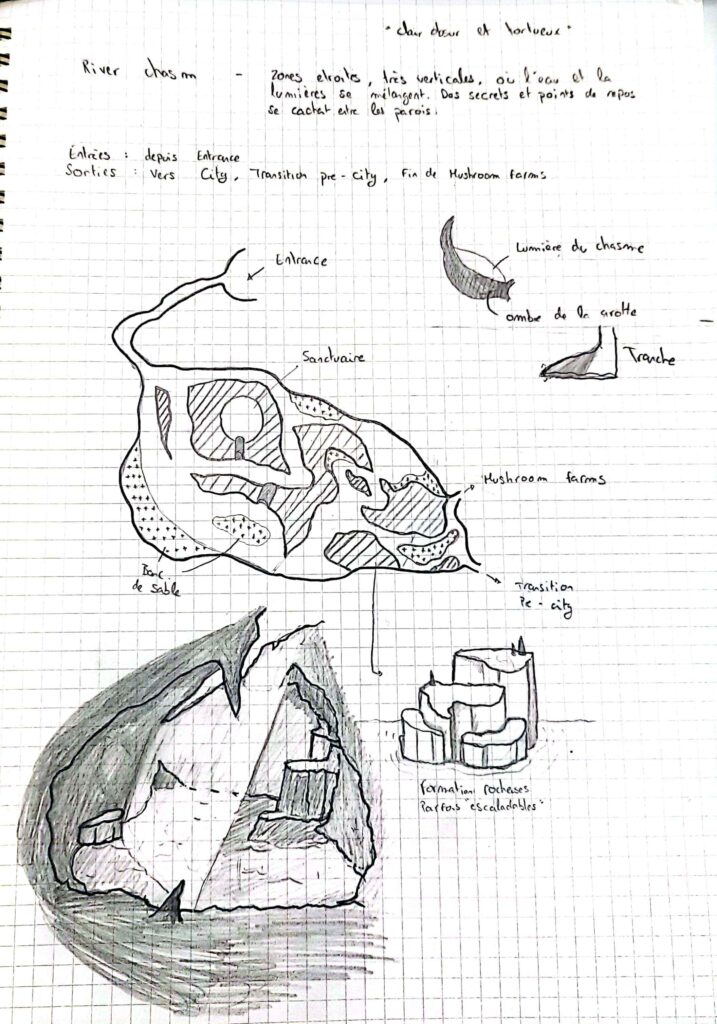 "clair obscur et tortueux"
River chasm - zones etroites, très verticales, où l'eau et la
lumières se mélangent. Des secrets et points de repos
se cachent entre les parois.
Entrées : depuis Entrance
Sorties : vers City, Transition pre-city, Fin de Mushroom farms
Entrance
Lumière du chasme
ombre de la grotte
Tranche
Sanctuaire
Mushroom farms
Banc
de sable
Transition
Pre-city
Formation rocheuses
Parfois "escaladables"